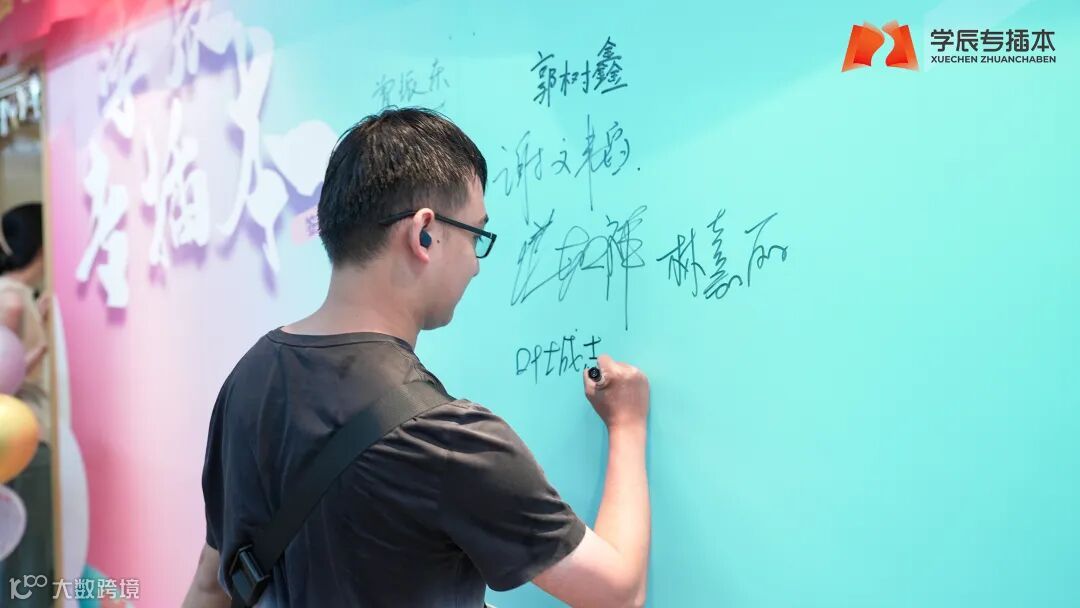 学辰专插本
XUECHEN ZHUANCHABEN
曾振东
郭树鑫
谢文
林嘉丽
叶城志
考插本
大数跨境